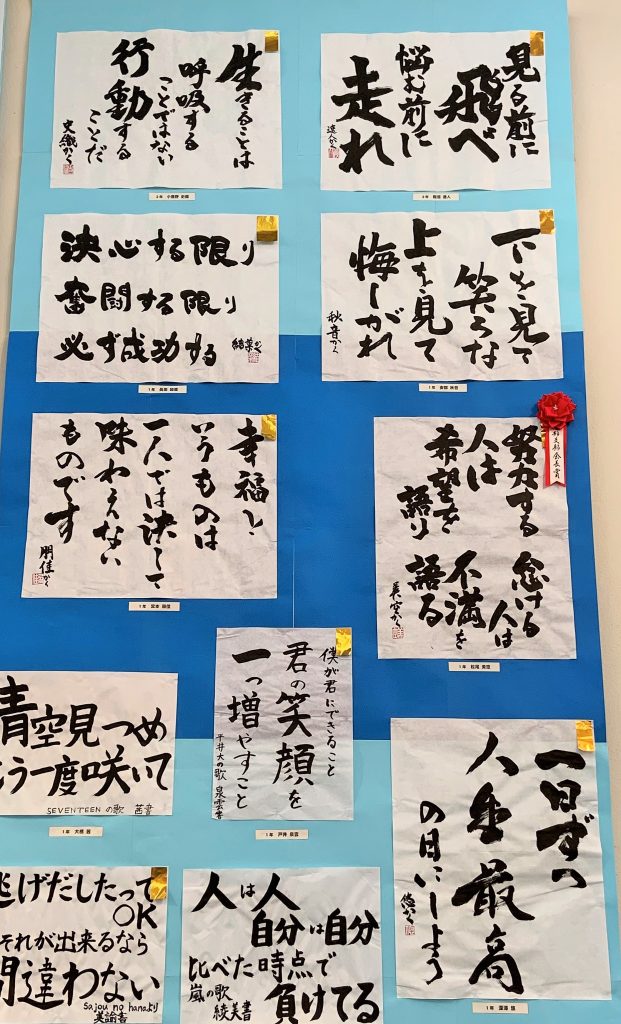 生きることは
呼吸する
ことではない
行動する
ことだ
史織かく
見る前に
飛べ
悩む前に
走れ
達人かく
決心する限り
奮闘する限り
必ず成功する
下を見て
笑うな
上を見て
悔しがれ
秋音かく
幸福と
いうものは
一人では決して
味わえない
ものです
朋佳かく
努力する
人は
希望を
語り
怠ける
人は
不満を
語る
僕が君にできること
君の笑顔を
一つ増やすこと
平井大の歌 泉雲書
青空見つめ
もう一度咲いて
SEVENTEENの歌 茜音
一日ずつ
人生最高
の日にしよう
悠かく
逃げだしたって
OK
それが出来るなら
間違わない
Sajou no hanaより
美諭書
人は人
自分は自分
比べた時点で
負けてる
嵐の歌
綾美書